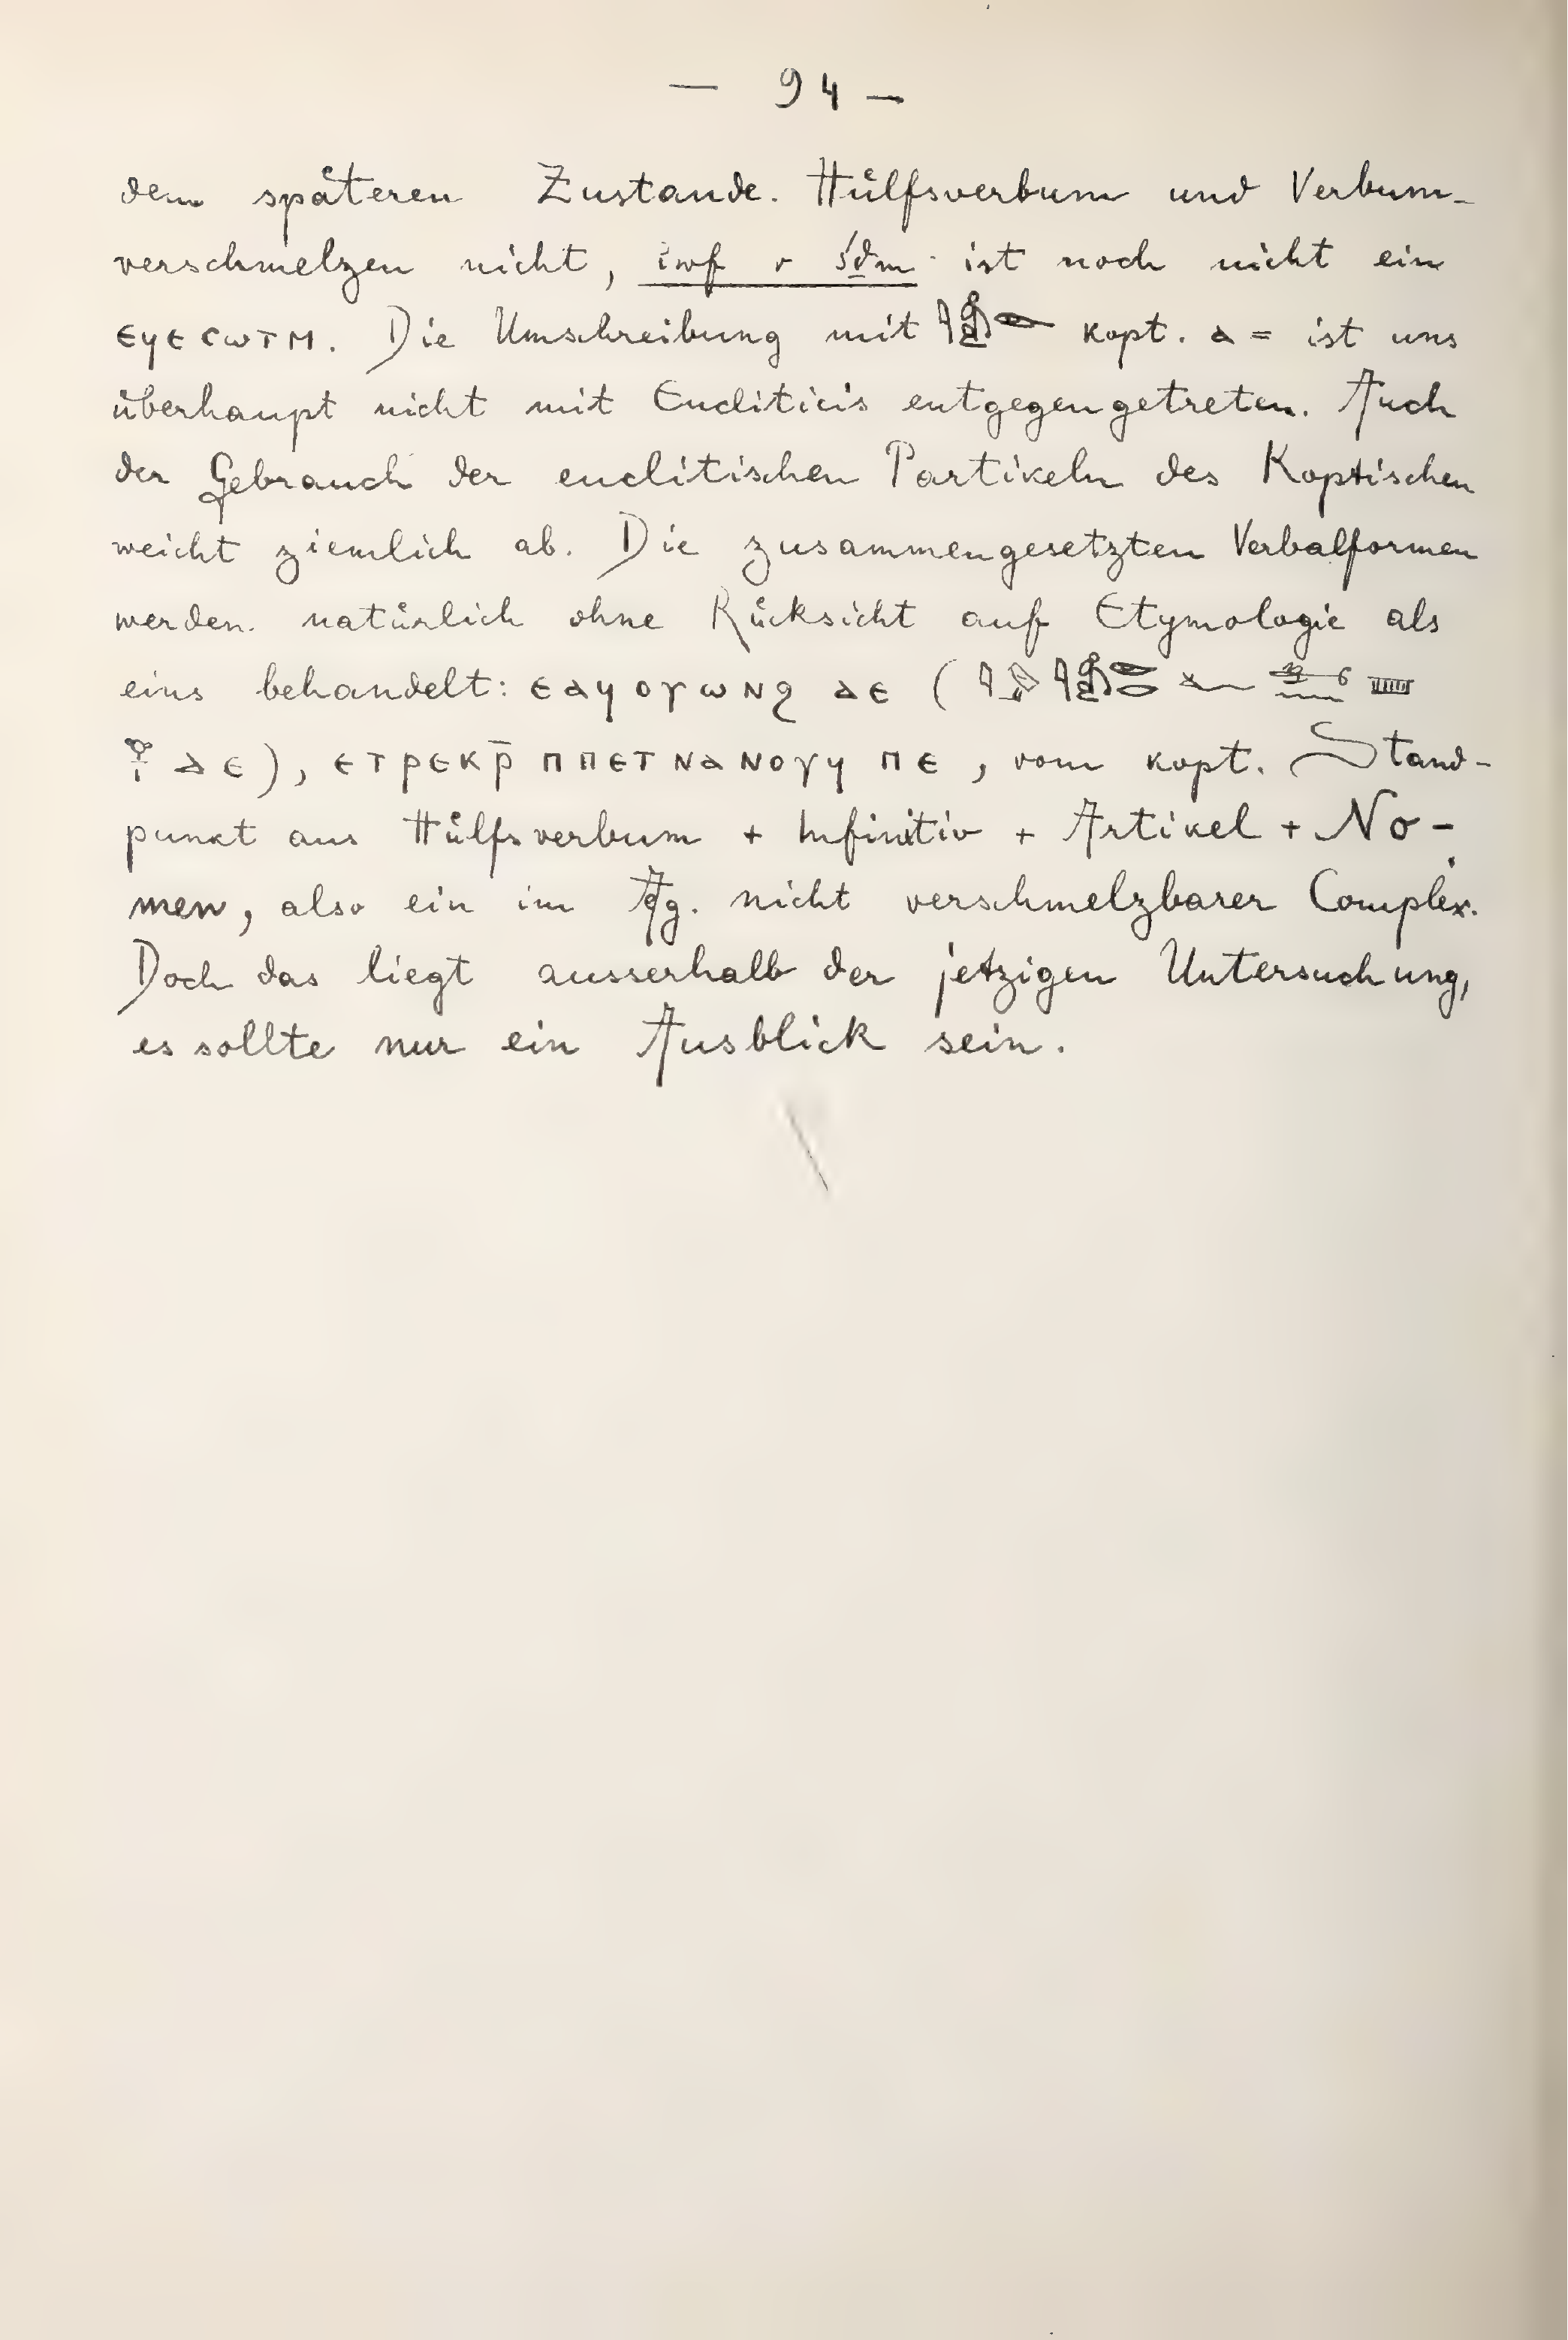 — 94 —
dem späteren Zustande. Hülfsverbum und Verbum
verschmelzen nicht, iwf r śḏm ist noch nicht ein
ⲉϥⲉⲥⲱⲧⲙ. Die Umschreibung mit kopt. ⲁ = ist uns
überhaupt nicht mit Encliticis entgegengetreten. Auch
der Gebrauch der enclitischen Partikeln des Koptischen
weicht ziemlich ab. Die zusammengesetzten Verbalformen
werden natürlich ohne Rücksicht auf Etymologie als
eins behandelt: ⲉⲁϥⲟⲩⲱⲛϩ ⲇⲉ (
ⲇⲉ), ⲉⲧⲣⲉⲕⲣ̄ ⲡⲡⲉⲧⲛⲁⲛⲟⲩϥ ⲡⲉ, vom kopt. Stand-
punkt aus Hülfsverbum + Infinitiv + Artikel + No-
men, also ein im Äg. nicht verschmelzbarer Complex.
Doch das liegt ausserhalb der jetzigen Untersuchung,
es sollte nur ein Ausblick sein.